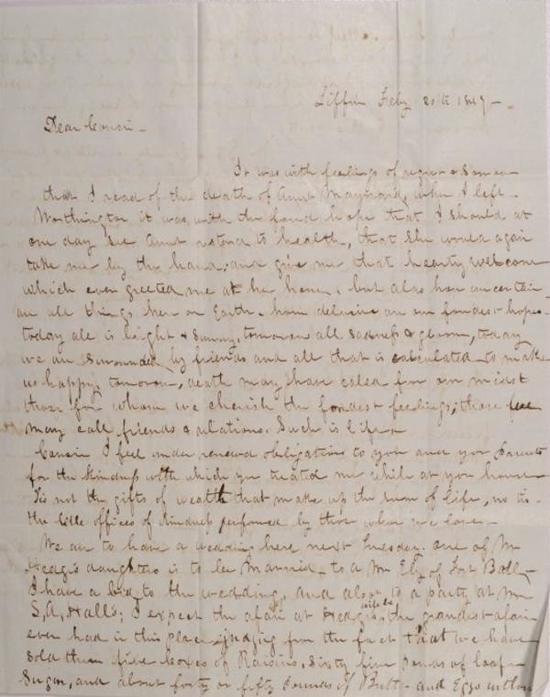 Tiffin Feby 20th 1849 -
Dear Cousin -
It was with feelings of regret & sorrow
that I read of the death of Aunt Maynard, when I left
Worthington it was with the fond hope that I should at
one day see Aunt restored to health, that she would again
take me by the hand, and give me that hearty welcome
which ever greeted me at her home, but alas how uncertain
are all things here on Earth. how delusive are our fondest hopes
today all is bright & sunny, tomorrow all sadness & gloom, today
we are surrounded by friends and all that is calculated to make
us happy tomorrow, death may have called from our midst
those for whom we cherish the fondest feelings, those
many call friends & relations. Such is life
Cousin I feel under renewed obligations to you and your Parents
for the kindness with which you treated me while at your house
Tis not the gifts of wealth that make up the sum of life, no tis
the little offices of kindness performed by those whom we love -
We are to have a wedding here next Tuesday. one of Mr
Hedges daughters is to be married to a Mr Ely of Fort Ball
I have a bid to the wedding, and also to a party at Mr
S, A, Halls; I expect the afair at Hedges will be the grandest afair
ever had in this place judging from the fact that we have
sold them five boxes of Raisins, sixty five pounds of loaf
Sugar, and about forty or fifty pounds of Butter - and Eggs